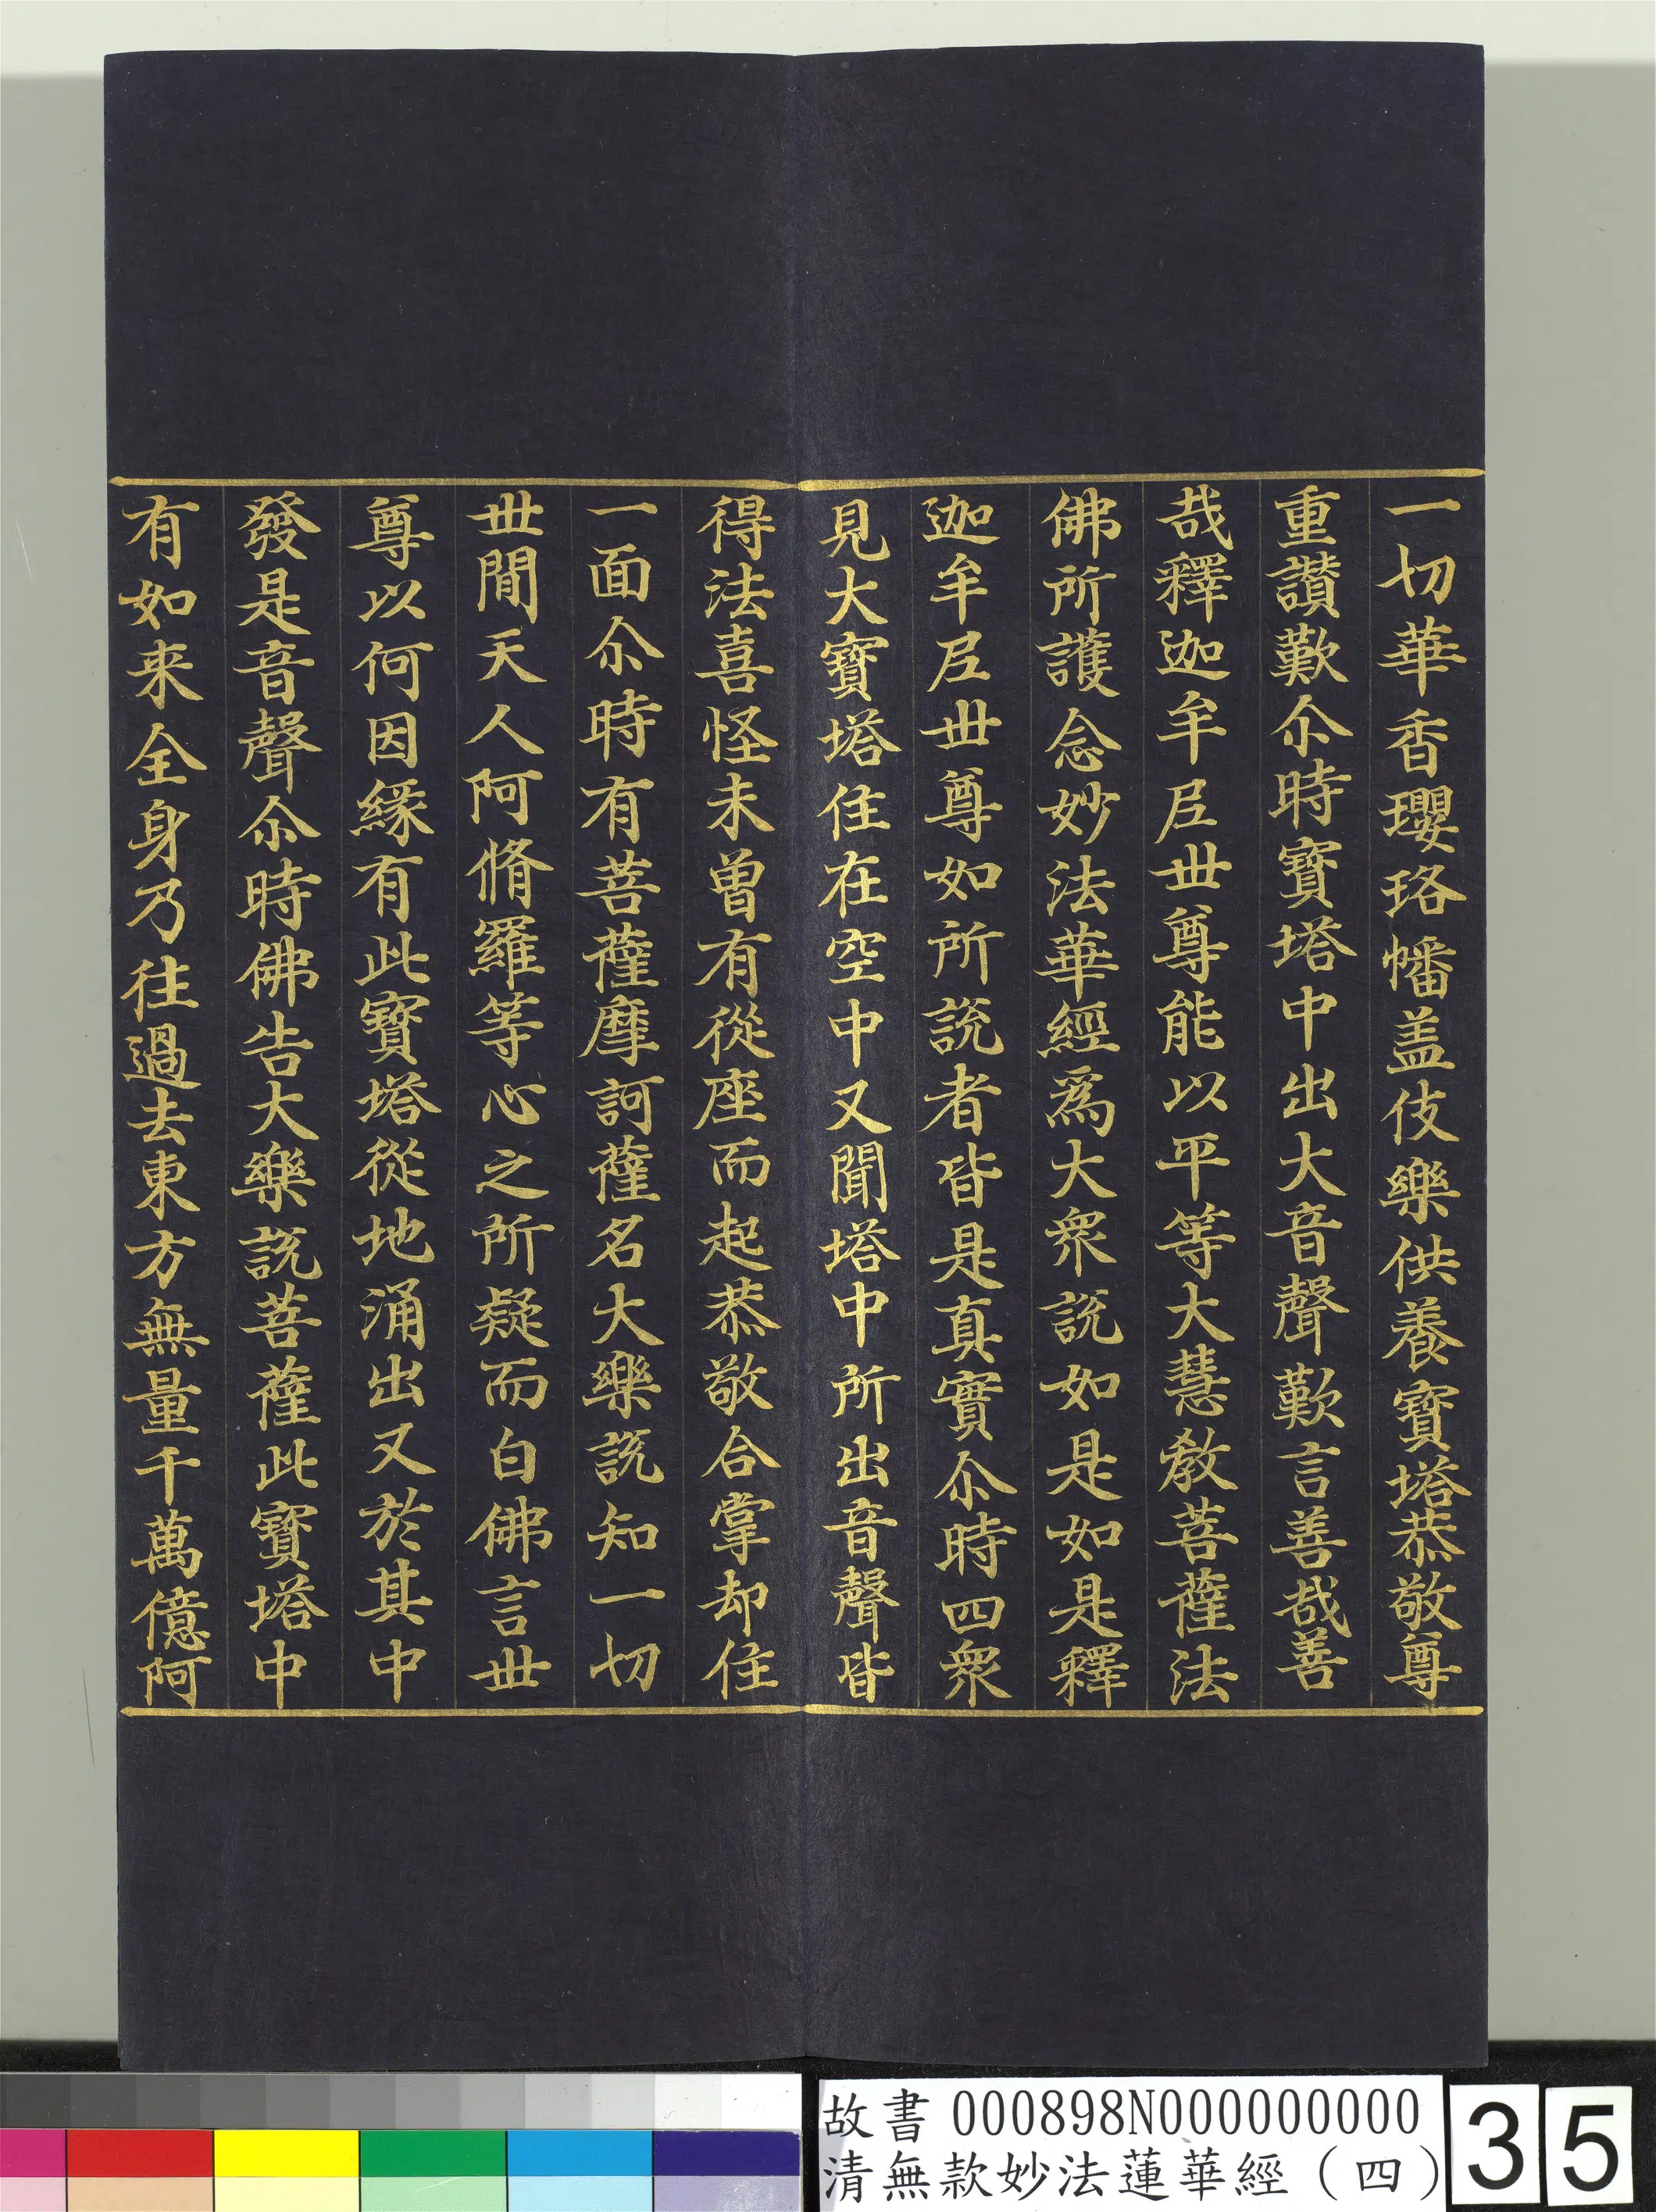 一切華香瓔珞幡盖伎樂供養寶塔恭敬尊
重讃歎尒時寶塔中出大音聲歎言善哉善
哉釋迦牟𡰱丗尊能以平等大慧教菩薩法
佛所護念妙法華經爲大衆説如是如是釋
迦牟𡰱丗尊如所説者皆是真實尒時四衆
見大寳塔住在空中又聞塔中所出音聲皆
得法喜怪未曽有從座而起恭敬合掌却住
一面尒時有菩薩摩訶薩名大樂説知一切
丗間天人阿脩羅等心之所疑而白佛言丗
尊以何因緣有此寳塔從地涌出又於其中
發是音聲尒時佛告大樂説菩薩此寳塔中
有如来全身乃往過去東方無量千萬億阿
故書 000898N000000000
清無款妙法蓮華經（四）
35